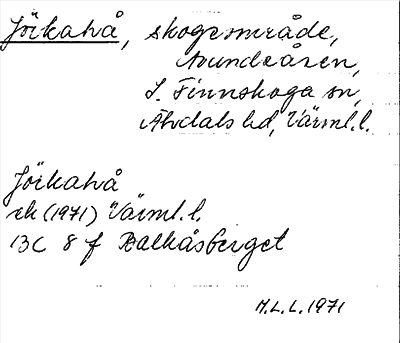 Jöikahå, skogsområde,
Avundsåsen,
S. Finnskoga sn,
Älvdals hd, Värml.l.
Jöikahå
ek (1971) Värml.l.
13C 8 f Balkåsberget
M.L.L. 1971